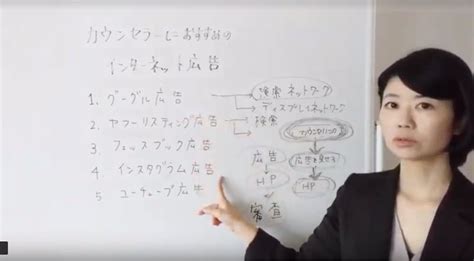 カウンセラーにおすすめの
インターネット広告
1. グーグル広告
2. ヤフーリスティング広告
3. フェイスブック広告
4. インスタグラム広告
5 ユーチューブ広告
検索ネットワーク
ディスプレイネットワーク
検索
カウンセリング
広告
HP
審査
広告を見せる
HP